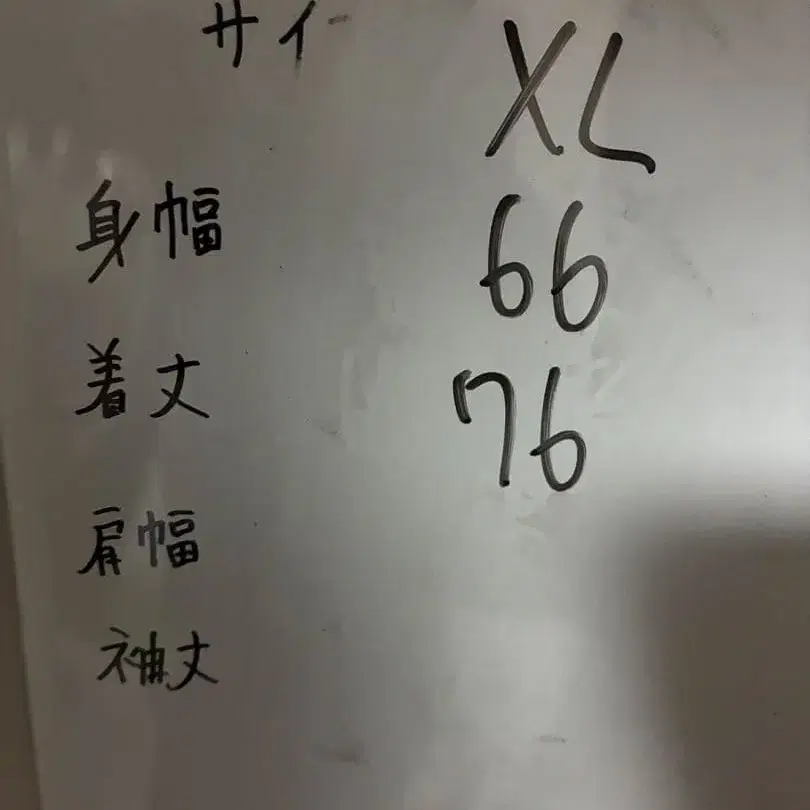 サイ XL
身幅 66
着丈 76
肩幅
袖丈